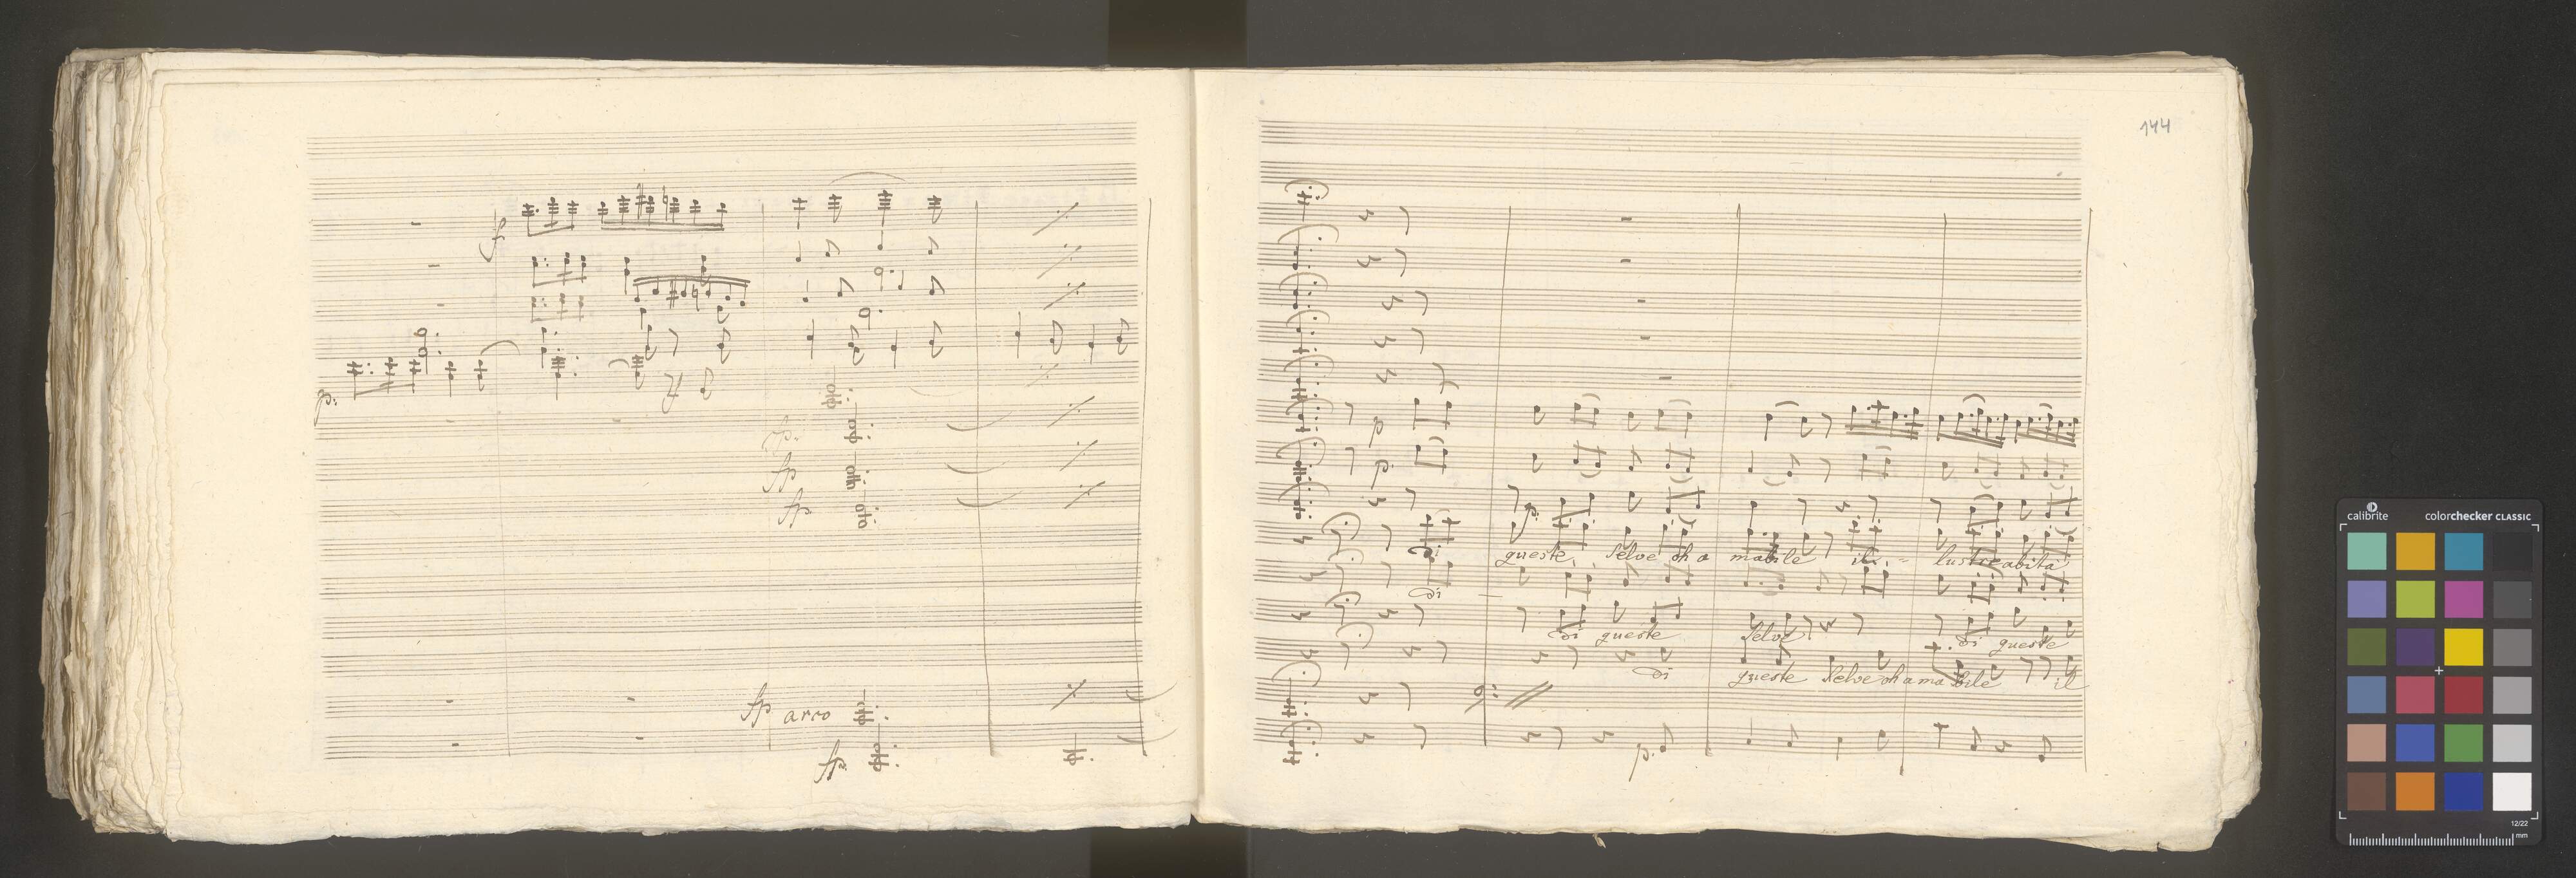 f
p:
fp
fp
fp arco
fp.
144
p
p.
p.
di queste Selve oh a mabile il = lustre abita
di
di queste Selve di queste
di queste Selve oh a ma bile il
p.
calibrite colorchecker CLASSIC
12/22
mm